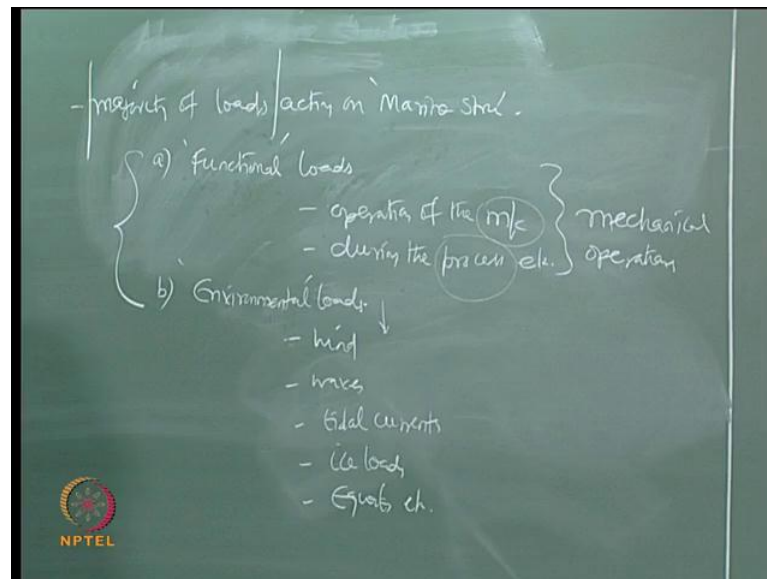 - majority of loads acting on Marine Stru.
a) 'Functional' loads
- operation of the m/c
- during the process etc.
mechanical operation
b) Environmental loads.
- wind
- waves
- tidal currents
- ice loads
- Equats etc.
NPTEL